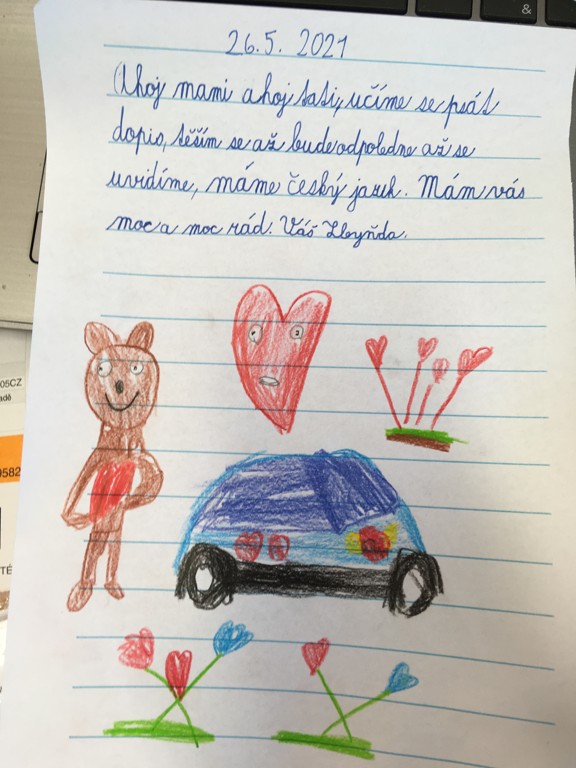 26.5. 2021
Ahoj mami ahoj tati, učíme se psát
dopis, těším se až bude odpoledne až se
uvidíme, máme český jazik. Mám vás
moc a moc rád. Váš Zbyňda.
&
05CZ
adě
9582
TÉ